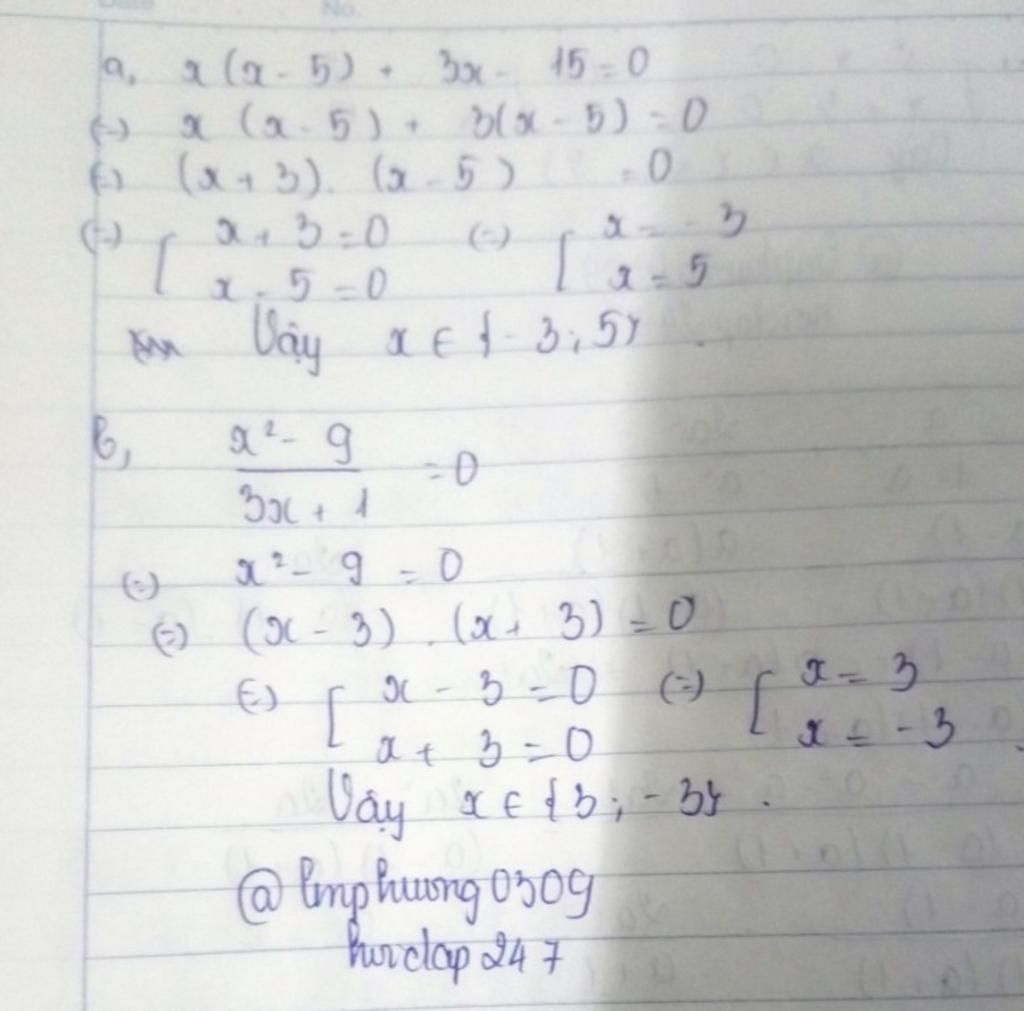 No.
a, x(x - 5) + 3x - 15 = 0
(=) x (x - 5) + 3(x - 5) = 0
(=) (x + 3). (x - 5) = 0
(=) [ x + 3 = 0 (=) [ x = - 3
x - 5 = 0 x = 5
Vậy x ∈ {- 3 ; 5}
b, x² - 9
= 0
3x + 1
(=) x² - 9 = 0
(=) (x - 3) . (x + 3) = 0
(=) [ x - 3 = 0 (=) [ x = 3
x + 3 = 0 x = - 3
Vậy x ∈ {3 ; - 3} .
@ lmphuong0309
hoidap 247